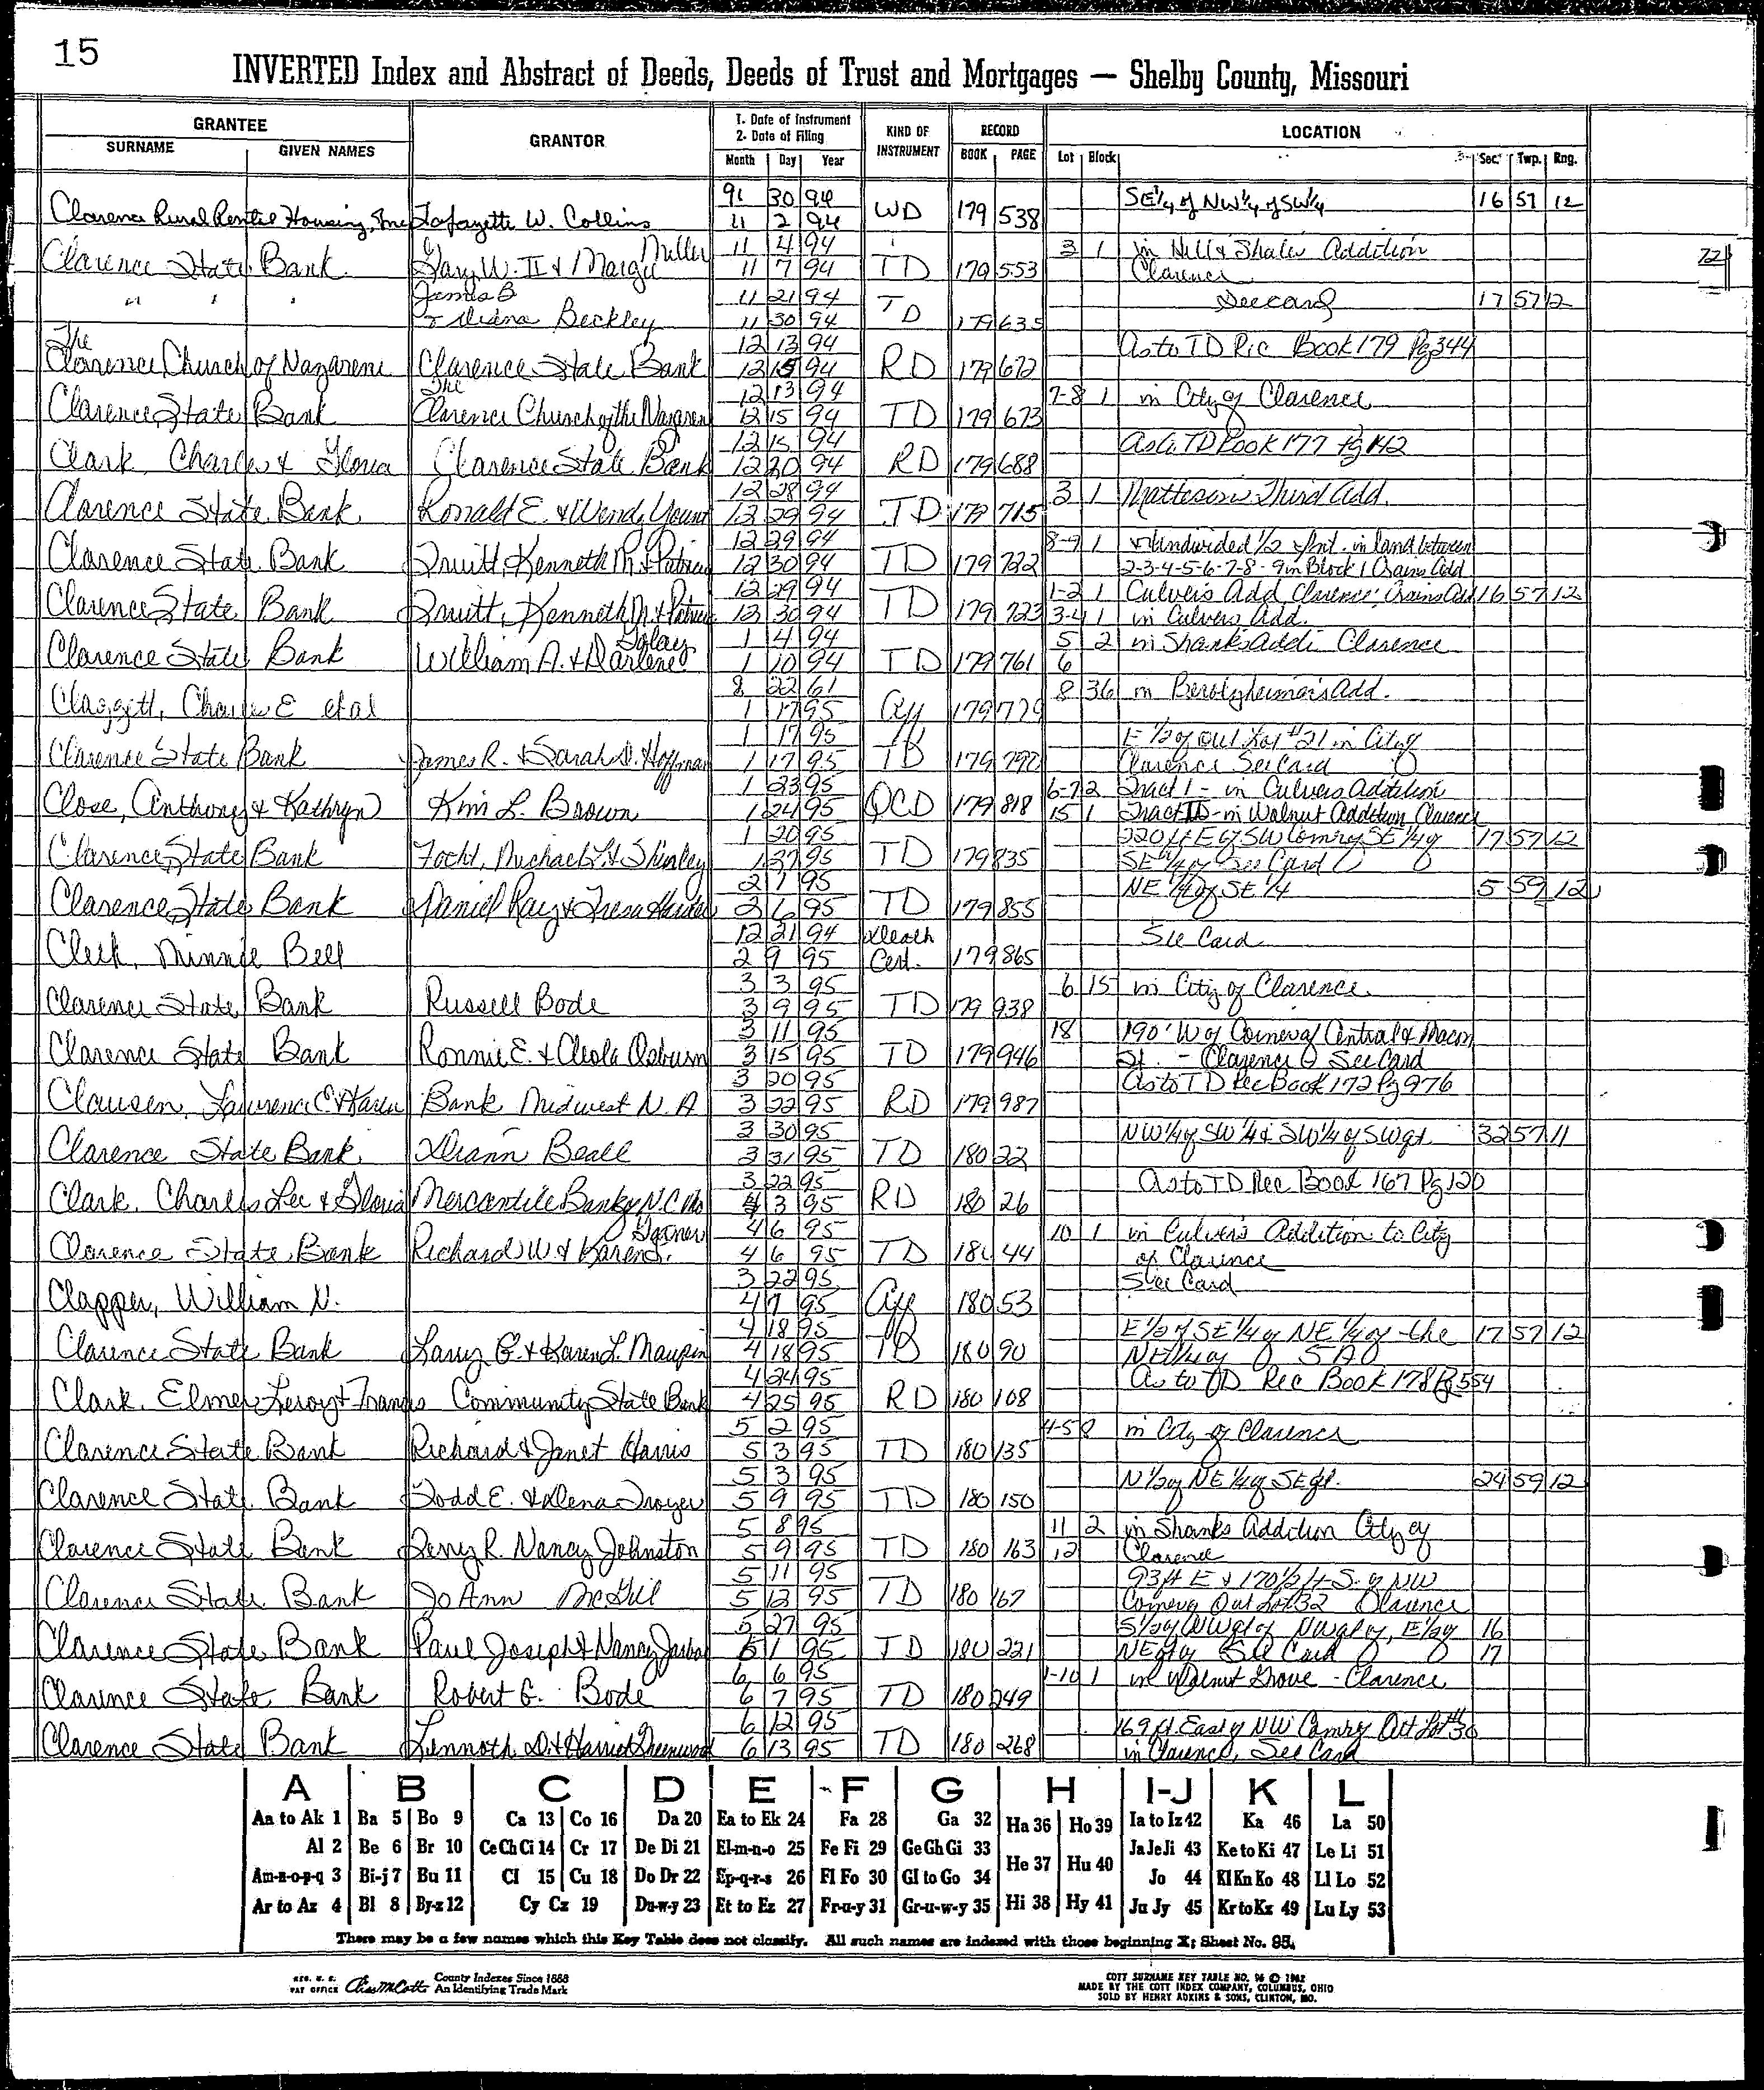 15
INVERTED Index and Abstract of Deeds, Deeds of Trust and Mortgages — Shelby County, Missouri
GRANTEE GRANTOR 1. Date of Instrument 2. Date of Filing KIND OF INSTRUMENT RECORD LOCATION
SURNAME GIVEN NAMES Month Day Year BOOK PAGE Lot Block Sec. Twp. Rng.
30 94 SE¼ of NW¼ of SW¼ 16 57 12
Clarence Rural Rental Housing, Inc Lafayette W. Collins 11 2 94 WD 179 538
Miller 11 4 94 3 1 in Hill & Shales Addition
Clarence State Bank Gary W. II & Margie 11 7 94 TD 179 553 Clarence
James B 11 21 94 See card 17 57 12
" " " & Diana Beckley 11 30 94 TD 179 635
The 12 13 94 As to TD Rec Book 179 Pg 344
Clarence Church of Nazarene Clarence State Bank 12 15 94 RD 179 672
The 12 13 94 7-8 1 in City of Clarence
Clarence State Bank Clarence Church of the Nazarene 12 15 94 TD 179 673
12 15 94 As to TD Book 177 Pg 142
Clark, Charles & Gloria Clarence State Bank 12 20 94 RD 179 688
12 28 94 3 1 Mattesons Third Add.
Clarence State Bank Ronald E. & Wendy Yount 12 29 94 TD 179 715
12 29 94 8-9 1 & Undivided 1/2 Int. in land between
Clarence State Bank Truitt, Kenneth M. & Patricia 12 30 94 TD 179 722 2-3-4-5-6-7-8-9 in Block 1 Crains Add
12 29 94 1-2 1 Culvers Add, Clarence, Crains Add 16 57 12
Clarence State Bank Truitt, Kenneth M. & Patricia 12 30 94 TD 179 723 3-4 1 in Culvers Add.
1 4 94 5 2 in Shanks Addi. Clarence
Clarence State Bank William A. & Darlene 1 10 94 TD 179 761 6
8 22 61 8 36 in Add.
Claggett, Charles E etal 1 17 95 Aff 179 779
1 17 95 E 1/2 of Out Lot #21 in City of
Clarence State Bank James R. & Sarah D. Hoffman 1 17 95 TD 179 792 Clarence See Card
1 23 95 6-7 2 Tract I - in Culvers Addition
Close, Anthony & Kathryn Kim L. Brown 1 24 95 QCD 179 818 15 1 Tract II - in Walnut Addition Clarence
1 20 95 220 ft E of SW Corner of SE ¼ of 17 57 12
Clarence State Bank Focht, Michael L. & Shirley 1 27 95 TD 179 835 SE ¼ of See Card
2 1 95 NE ¼ of SE ¼ 5 59 12
Clarence State Bank Daniel Ray & 2 6 95 TD 179 855
12 21 94 Death See Card
Cleek, Minnie Bell 2 9 95 Cert. 179 865
3 3 95 6 15 in City of Clarence
Clarence State Bank Russell Bode 3 9 95 TD 179 938
3 11 95 18 190' W of Corner of Central & Macon
Clarence State Bank Ronnie E. & Cleola Osburn 3 15 95 TD 179 946 St. - Clarence See Card
3 20 95 As to TD Rec Book 172 Pg 976
Clausen, Lawrence C & Karen Bank Midwest N.A 3 22 95 RD 179 987
3 30 95 NW ¼ of SW ¼ & SW ¼ of SW qt. 32 57 11
Clarence State Bank Diann Beall 3 31 95 TD 180 22
3 22 95 As to TD Rec Book 167 Pg 120
Clark, Charles Lee & Gloria Mercantile Bank of N.C. Mo 4 3 95 RD 180 26
4 6 95 10 1 in Culvers Addition to City
Clarence State Bank Richard W. & Karen S. 4 6 95 TD 180 44 of Clarence
3 22 95 See Card
Clapper, William N. 4 7 95 Aff 180 53
4 18 95 E 1/2 of SE ¼ of NE ¼ of the 17 57 12
Clarence State Bank Larry G. & Karen L. Maupin 4 18 95 TD 180 90 NE ¼ of
4 24 95 As to TD Rec Book 178 Pg 554
Clark, Elmer Leroy & Frances Community State Bank 4 25 95 RD 180 108
5 2 95 in City of Clarence
Clarence State Bank Richard & Janet Harris 5 3 95 TD 180 135
5 3 95 N 1/2 of NE ¼ of SE qt. 24 59 12
Clarence State Bank Todd E. & Troyer 5 9 95 TD 180 150
5 8 95 11 2 in Shanks Addition City of
Clarence State Bank R. Nancy Johnston 5 9 95 TD 180 163 12 Clarence
5 11 95 93 ft E & 170 1/2 ft S. of NW
Clarence State Bank JoAnn McGill 5 12 95 TD 180 167 Corner of Out Lot 32 Clarence
5 27 95 16
Clarence State Bank Paul Joseph & Nancy 1 95 TD 180 221 See Card 17
6 6 95 1-10 1 in Walnut Grove - Clarence
Clarence State Bank Robert G. Bode 6 7 95 TD 180 249
6 12 95 169 ft. East of NW Corner of Out Lot 30
Clarence State Bank Kenneth D. & Harriet Greenwood 6 13 95 TD 180 268 in Clarence, See Card
A B C D E F G H I-J K L
Aa to Ak 1 Ba 5 Bo 9 Ca 13 Co 16 Da 20 Ea to Ek 24 Fa 28 Ga 32 Ha 36 Ho 39 Ia to Iz 42 Ka 46 La 50
Al 2 Be 6 Br 10 Ce Ch Ci 14 Cr 17 De Di 21 El-m-n-o 25 Fe Fi 29 Ge Gh Gi 33 He 37 Hu 40 Ja Je Ji 43 Ke to Ki 47 Le Li 51
Am-n-o-p-q 3 Bi-j 7 Bu 11 Cl 15 Cu 18 Do Dr 22 Ep-q-r-s 26 Fl Fo 30 Gl to Go 34 Jo 44 Kl Kn Ko 48 Ll Lo 52
Ar to Az 4 Bl 8 By-z 12 Cy Cz 19 Du-w-y 23 Et to Ez 27 Fr-u-y 31 Gr-u-w-y 35 Hi 38 Hy 41 Ju Jy 45 Kr to Kz 49 Lu Ly 53
There may be a few names which this Key Table does not classify. All such names are indexed with those beginning X; Sheet No. 95.
REG. U. S. PAT OFFICE County Indexes Since 1888 An Identifying Trade Mark
COTT SURNAME KEY TABLE NO. 96 © 1962
MADE BY THE COTT INDEX COMPANY, COLUMBUS, OHIO
SOLD BY HENRY ADKINS & SONS, CLINTON, MO.